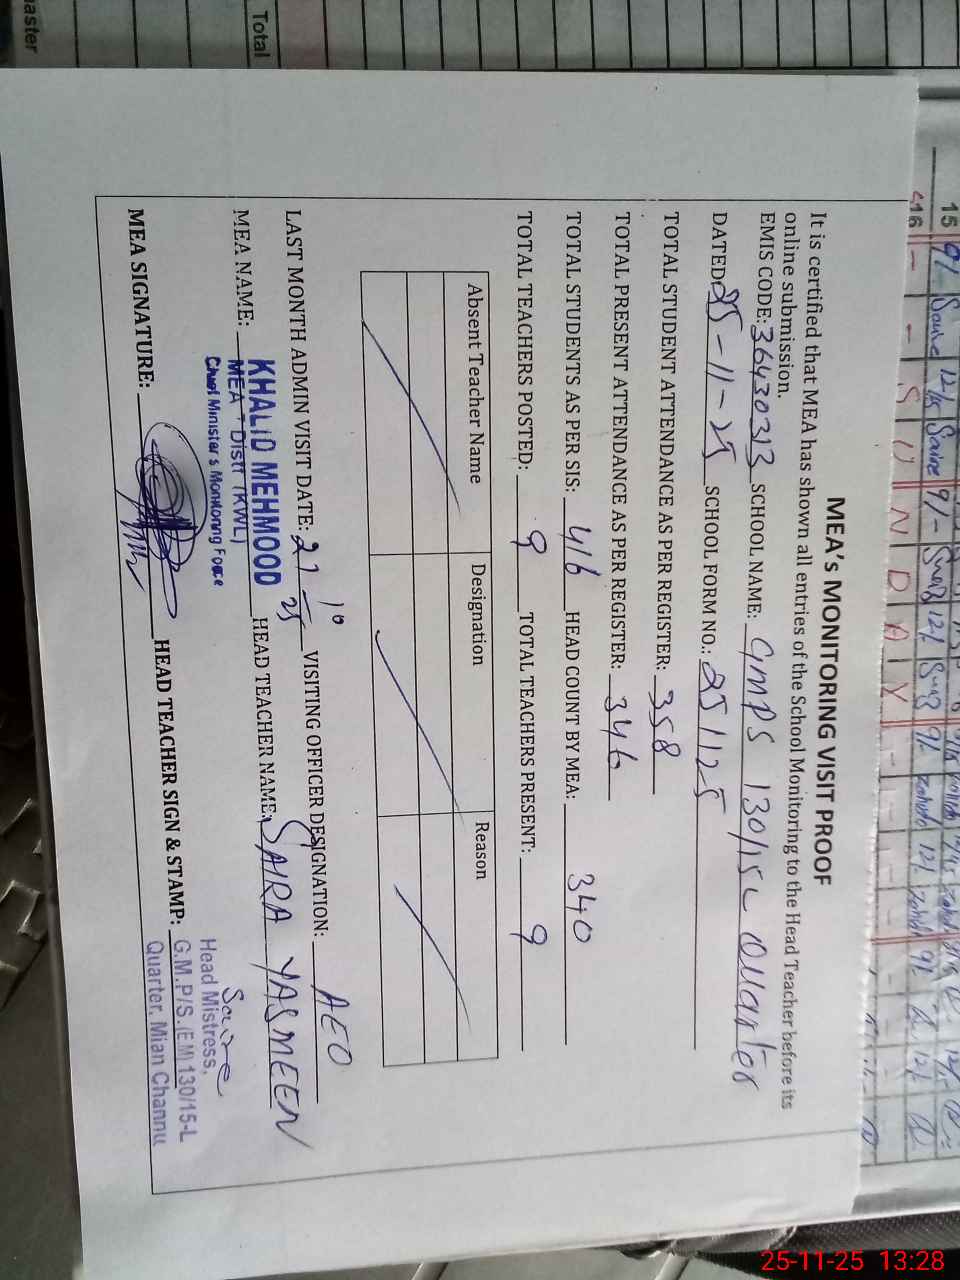 MEA's MONITORING VISIT PROOF
It is certified that MEA has shown all entries of the School Monitoring to the Head Teacher before its
online submission.
EMIS CODE: 36430313 SCHOOL NAME: GMPS 130/15L Quarter
DATED: 25-11-25 SCHOOL FORM NO.: 251125
TOTAL STUDENT ATTENDANCE AS PER REGISTER: 358
TOTAL PRESENT ATTENDANCE AS PER REGISTER: 346
TOTAL STUDENTS AS PER SIS: 416 HEAD COUNT BY MEA: 340
TOTAL TEACHERS POSTED: 9 TOTAL TEACHERS PRESENT: 9
Absent Teacher Name Designation Reason
LAST MONTH ADMIN VISIT DATE: 27/10/25 VISITING OFFICER DESIGNATION: AEO
MEA NAME: KHALID MEHMOOD HEAD TEACHER NAME: SAIRA YASMEEN
MEA - Distt (KWL)
Chief Minister's Monitoring Force
MEA SIGNATURE: HEAD TEACHER SIGN & STAMP:
Head Mistress,
G.M.P/S.(EM) 130/15-L
Quarter, Mian Channu
Total
15
16 SUNDAY
25-11-25 13:28